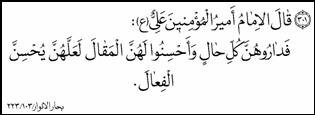 ﴿٣٠١﴾ قالَ الاِمامُ أَميرُ المُؤْمِنينَ عَلِيٌّ (ع):
فَدارُوهُنَّ كُلِّ حالٍ وَأَحْسِنُوا لَهُنَّ المَقالَ لَعَلَّهُنَّ يُحْسِنَّ
الفِعالَ.
بحارالانوار ٢٢٣/١٠٣